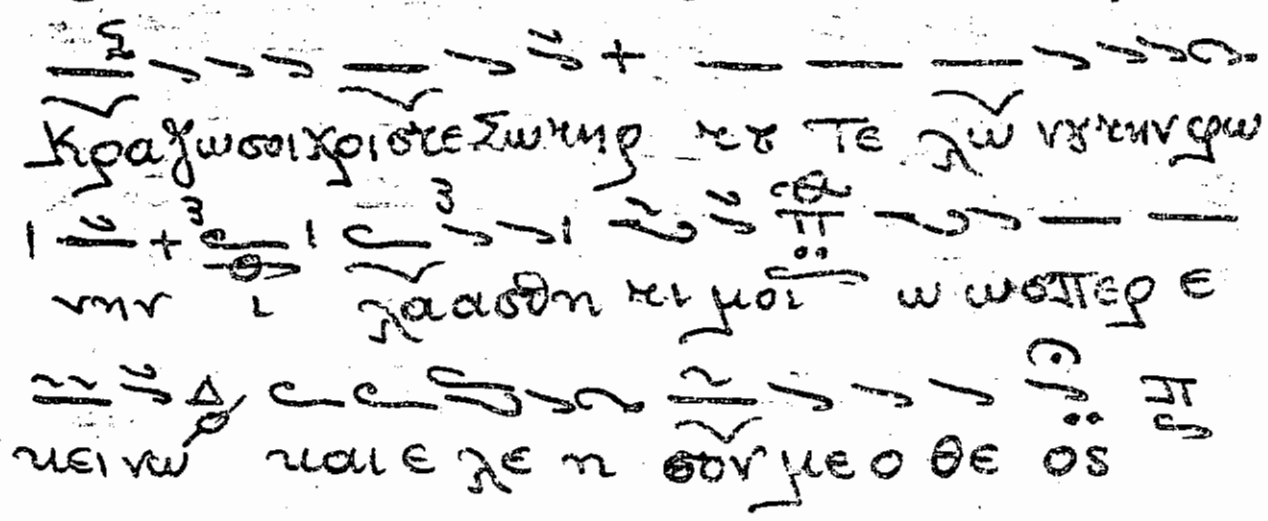 Κραζωσοιχριστε Σωτηρ τȣ Τε λω νȣ την φω
νην ι λαασθη τι μοι ω ωσπερ ε
κει νω και ε λε η σον με ο θε ος